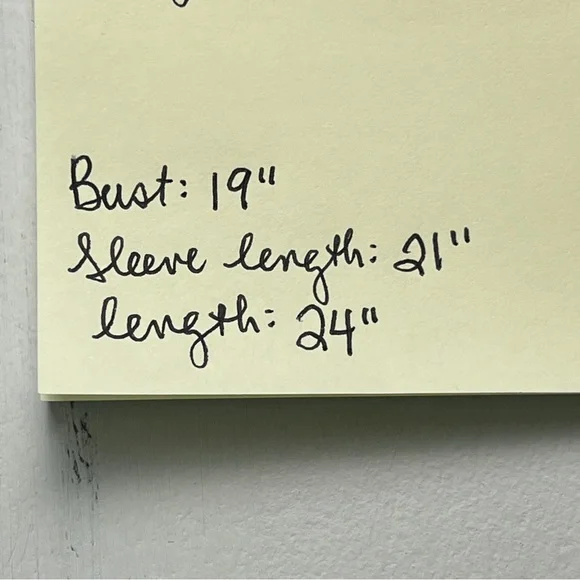 Bust: 19"
Sleeve length: 21"
length: 24"